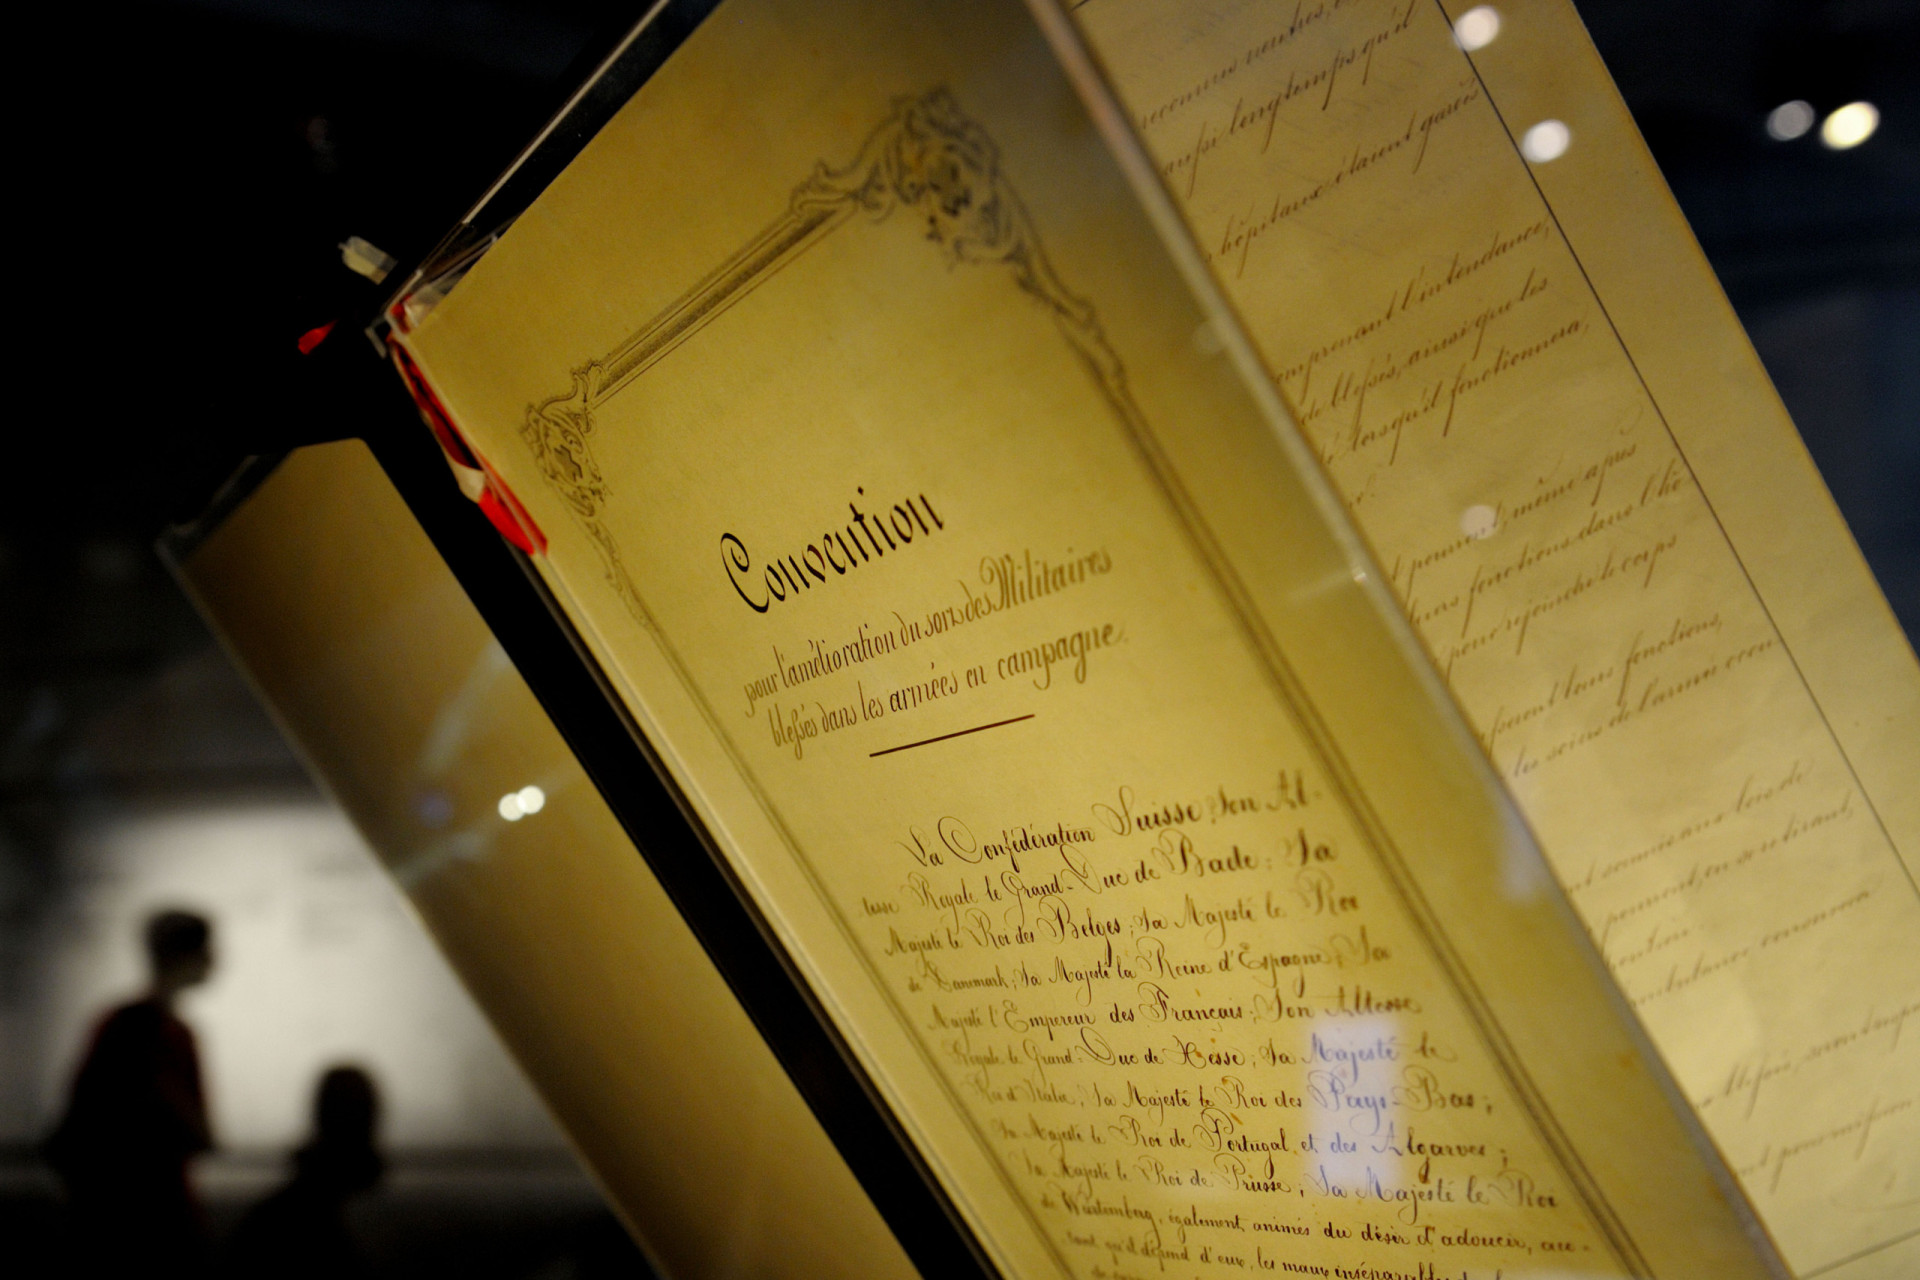 Convention
pour l'amélioration du sort des Militaires
blessés dans les armées en campagne.
La Confédération Suisse; Son Al-
tesse Royale le Grand-Duc de Bade; Sa
Majesté le Roi des Belges; Sa Majesté le Roi
de Danemark; Sa Majesté la Reine d'Espagne; Sa
Majesté l'Empereur des Français; Son Altesse
Royale le Grand-Duc de Hesse; Sa Majesté le
Roi d'Italie; Sa Majesté le Roi des Pays-Bas;
Sa Majesté le Roi de Portugal et des Algarves;
Sa Majesté le Roi de Prusse; Sa Majesté le Roi
de Würtemberg, également animés du désir d'adoucir, au-
tant qu'il dépend d'eux, les maux inséparables
reconnus neutres,
aussi longtemps qu'il
hôpitaux étaient gardés
comprenant l'intendance,
de blessés, ainsi que les
lorsqu'il fonctionnera,
pourront, même après
leurs fonctions dans l'hô-
pour rejoindre le corps
cesseront leurs fonctions,
les soins de l'armée occu
demeurant soumis aux lois de
pourront, en se retirant,
ambulance conservera